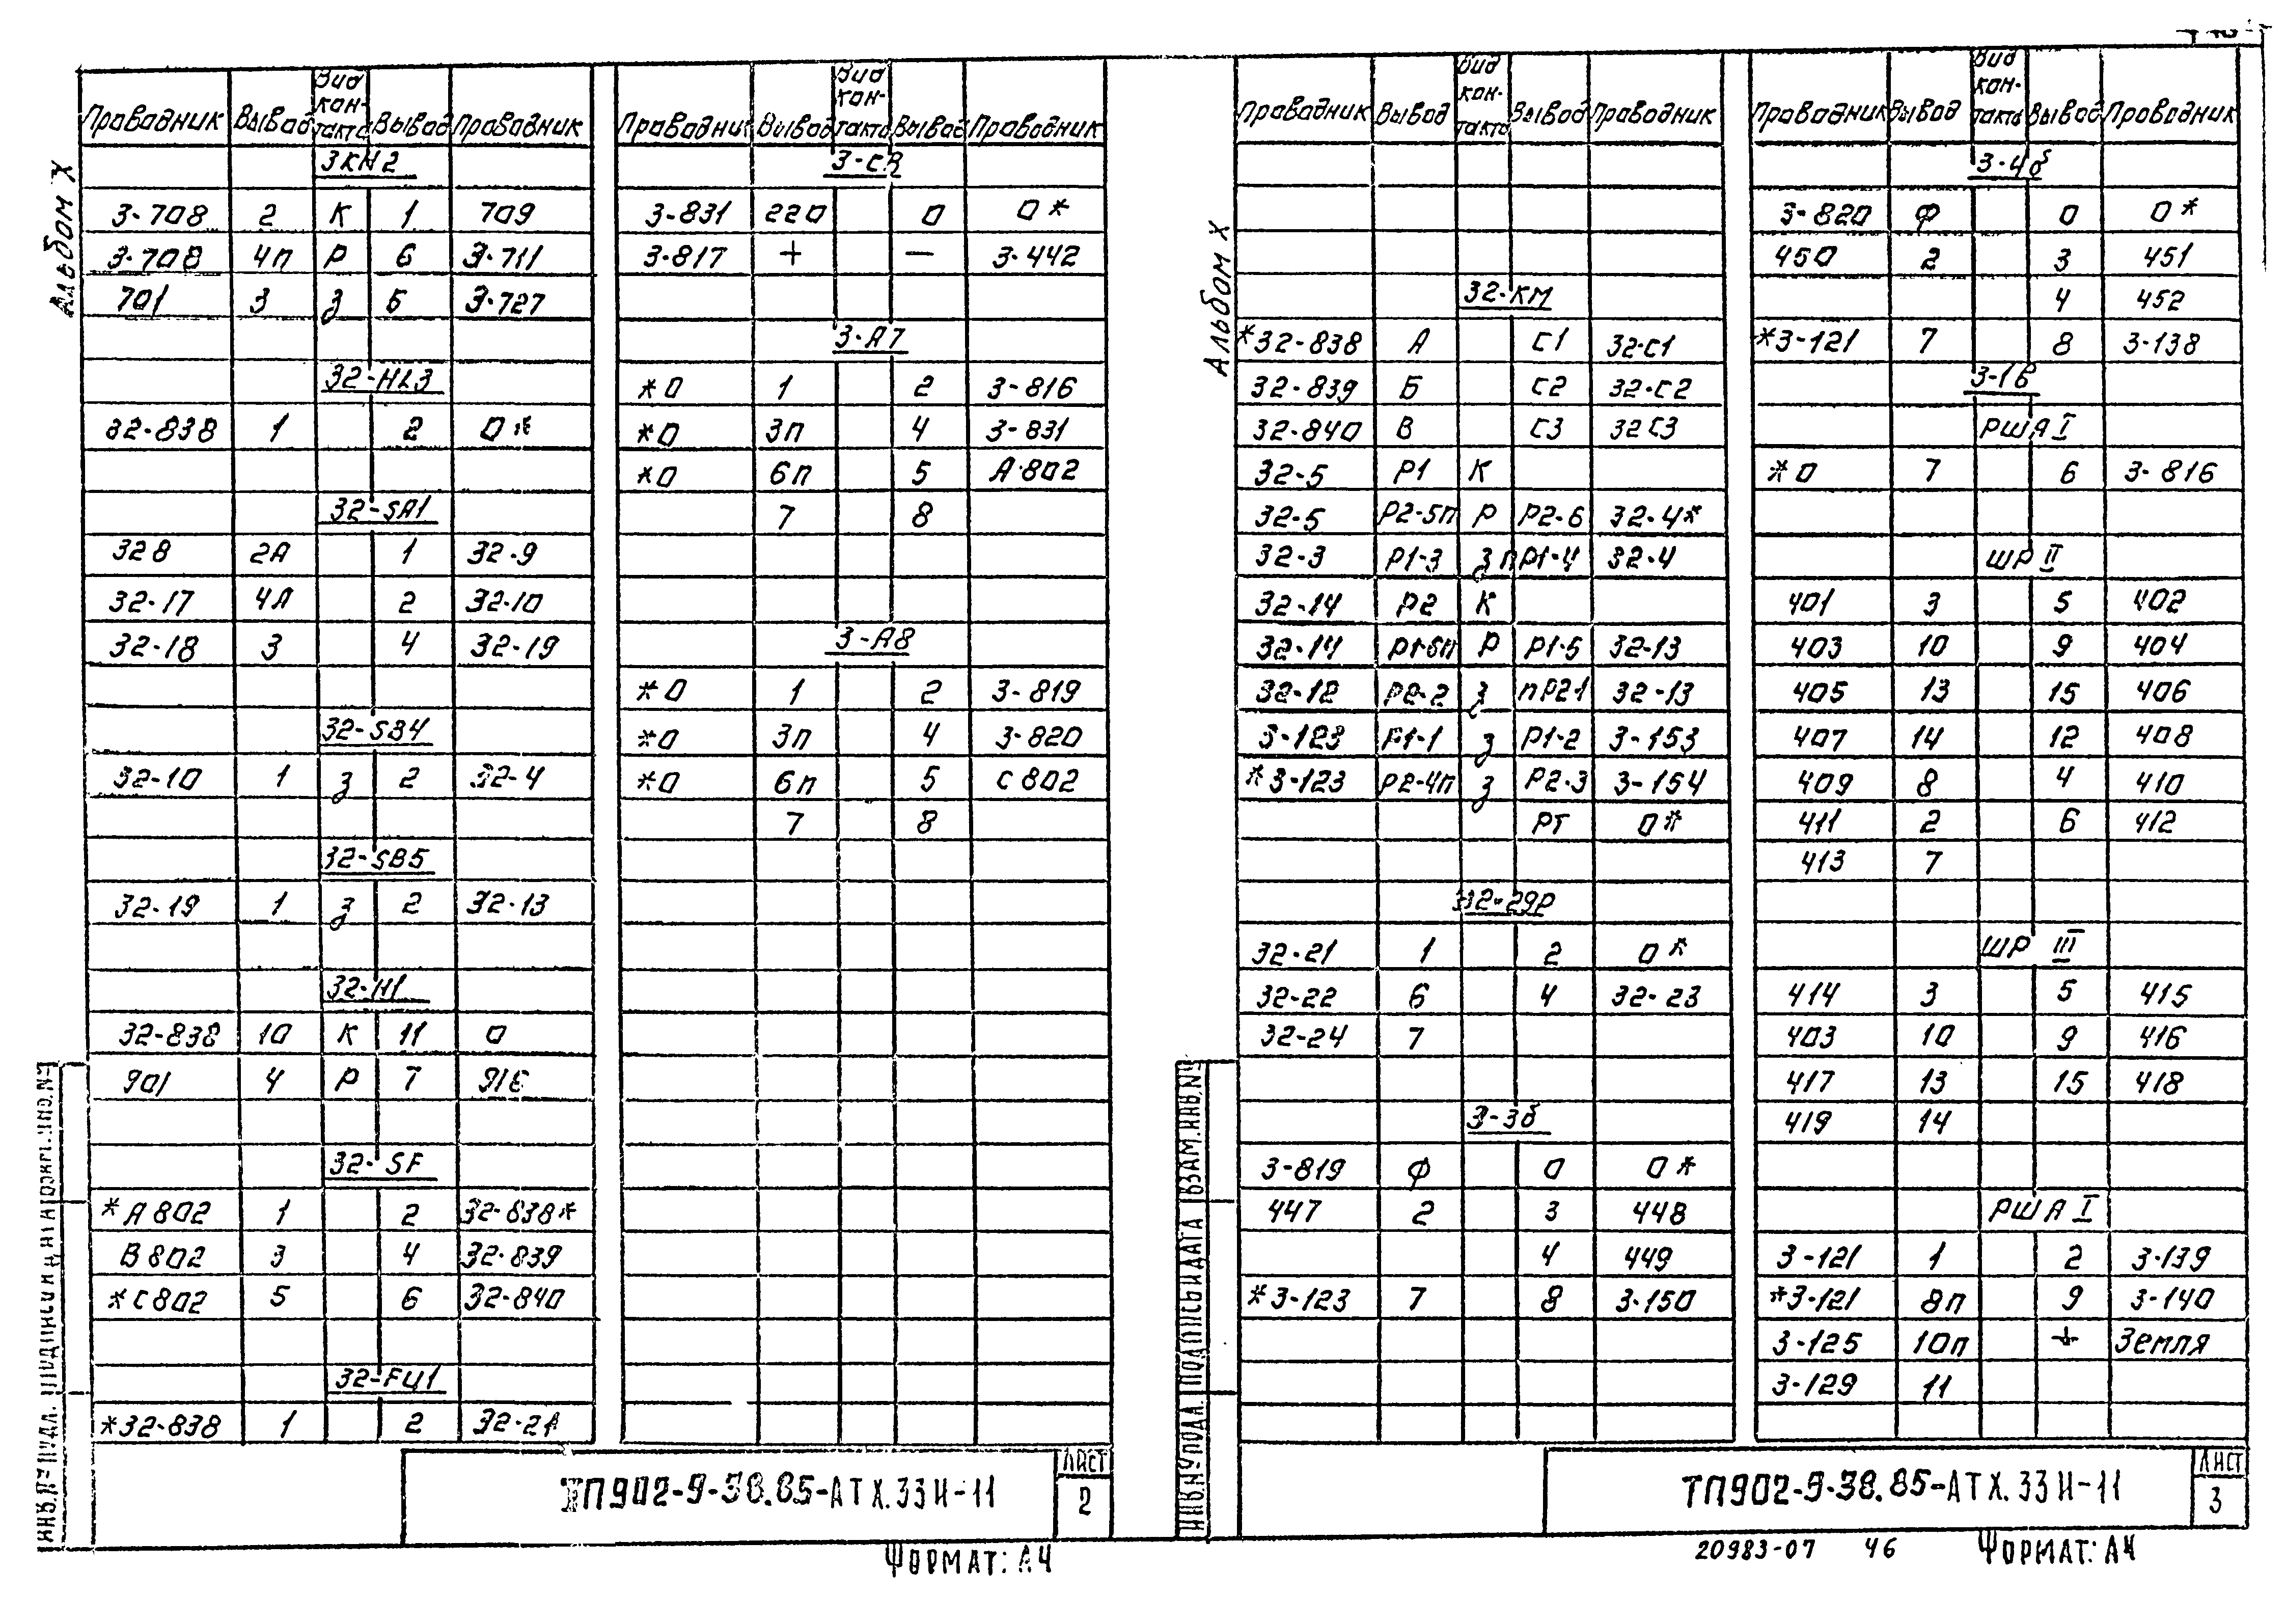 Альбом X
Проводник Вывод Вид контакта Вывод Проводник
3КН2
3-708 2 К 1 709
3-708 4п Р 6 3-711
701 3 З 5 3-727
32-HL3
32-838 1 2 0*
32-SA1
328 2А 1 32-9
32-17 4А 2 32-10
32-18 3 4 32-19
32-SB4
32-10 1 З 2 32-4
32-SB5
32-19 1 З 2 32-13
32-H1
32-838 10 К 11 0
901 4 Р 7
32-SF
*А802 1 2 32-838*
В802 3 4 32-839
*С802 5 6 32-840
32-FU1
*32-838 1 2
Проводник Вывод Вид контакта Вывод Проводник
3-831 220 0 0*
3-817 + — 3-442
3-А7
*0 1 2 3-816
*0 3п 4 3-831
*0 6п 5 А-802
7 8
3-А8
*0 1 2 3-819
*0 3п 4 3-820
*0 6п 5 С802
7 8
ТП902-9-38.85-АТХ.33И-11
Лист
2
Формат: А4
Альбом X
Проводник Вывод Вид контакта Вывод Проводник
32-КМ
*32-838 А С1 32-С1
32-839 Б С2 32-С2
32-840 В С3 32С3
32-5 Р1 К
32-5 Р2-5п Р Р2-6 32-4*
32-3 Р1-3 З пР1-4 32-4
32-14 Р2 К
32-14 Р1-6п Р Р1-5 32-13
32-12 Р2-2 З пР2-1 32-13
3-123 Р1-1 З Р1-2 3-153
*3-123 Р2-4п З Р2-3 3-154
РТ 0*
32-29Р
32-21 1 2 0*
32-22 6 4 32-23
32-24 7
3-3б
3-819 Ф 0 0*
447 2 3 448
4 449
*3-123 7 8 3-150
Проводник Вывод Вид контакта Вывод Проводник
3-4б
3-820 Ф 0 0*
450 2 3 451
4 452
*3-121 7 8 3-138
3-1б
РША I
*0 7 6 3-816
ШР II
401 3 5 402
403 10 9 404
405 13 15 406
407 14 12 408
409 8 4 410
411 2 6 412
413 7
ШР III
414 3 5 415
403 10 9 416
417 13 15 418
419 14
РША I
3-121 1 2 3-139
*3-121 8п 9 3-140
3-125 10п Земля
3-129 11
ВЗАМ.ИНВ.№
ПОДПИСЬ И ДАТА
ИНВ.№ ПОДЛ.
ТП902-9-38.85-АТХ.33И-11
Лист
3
20983-07 46 Формат: А4